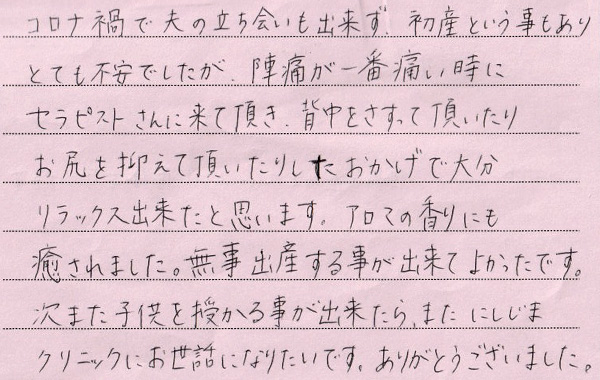 コロナ禍で夫の立ち会いも出来ず、初産という事もあり
とても不安でしたが、陣痛が一番痛い時に
セラピストさんに来て頂き、背中をさすって頂いたり
お尻を抑えて頂いたりしたおかげで大分
リラックス出来たと思います。アロマの香りにも
癒されました。無事出産する事が出来てよかったです。
次また子供を授かる事が出来たら、また にしじま
クリニックにお世話になりたいです。ありがとうございました。